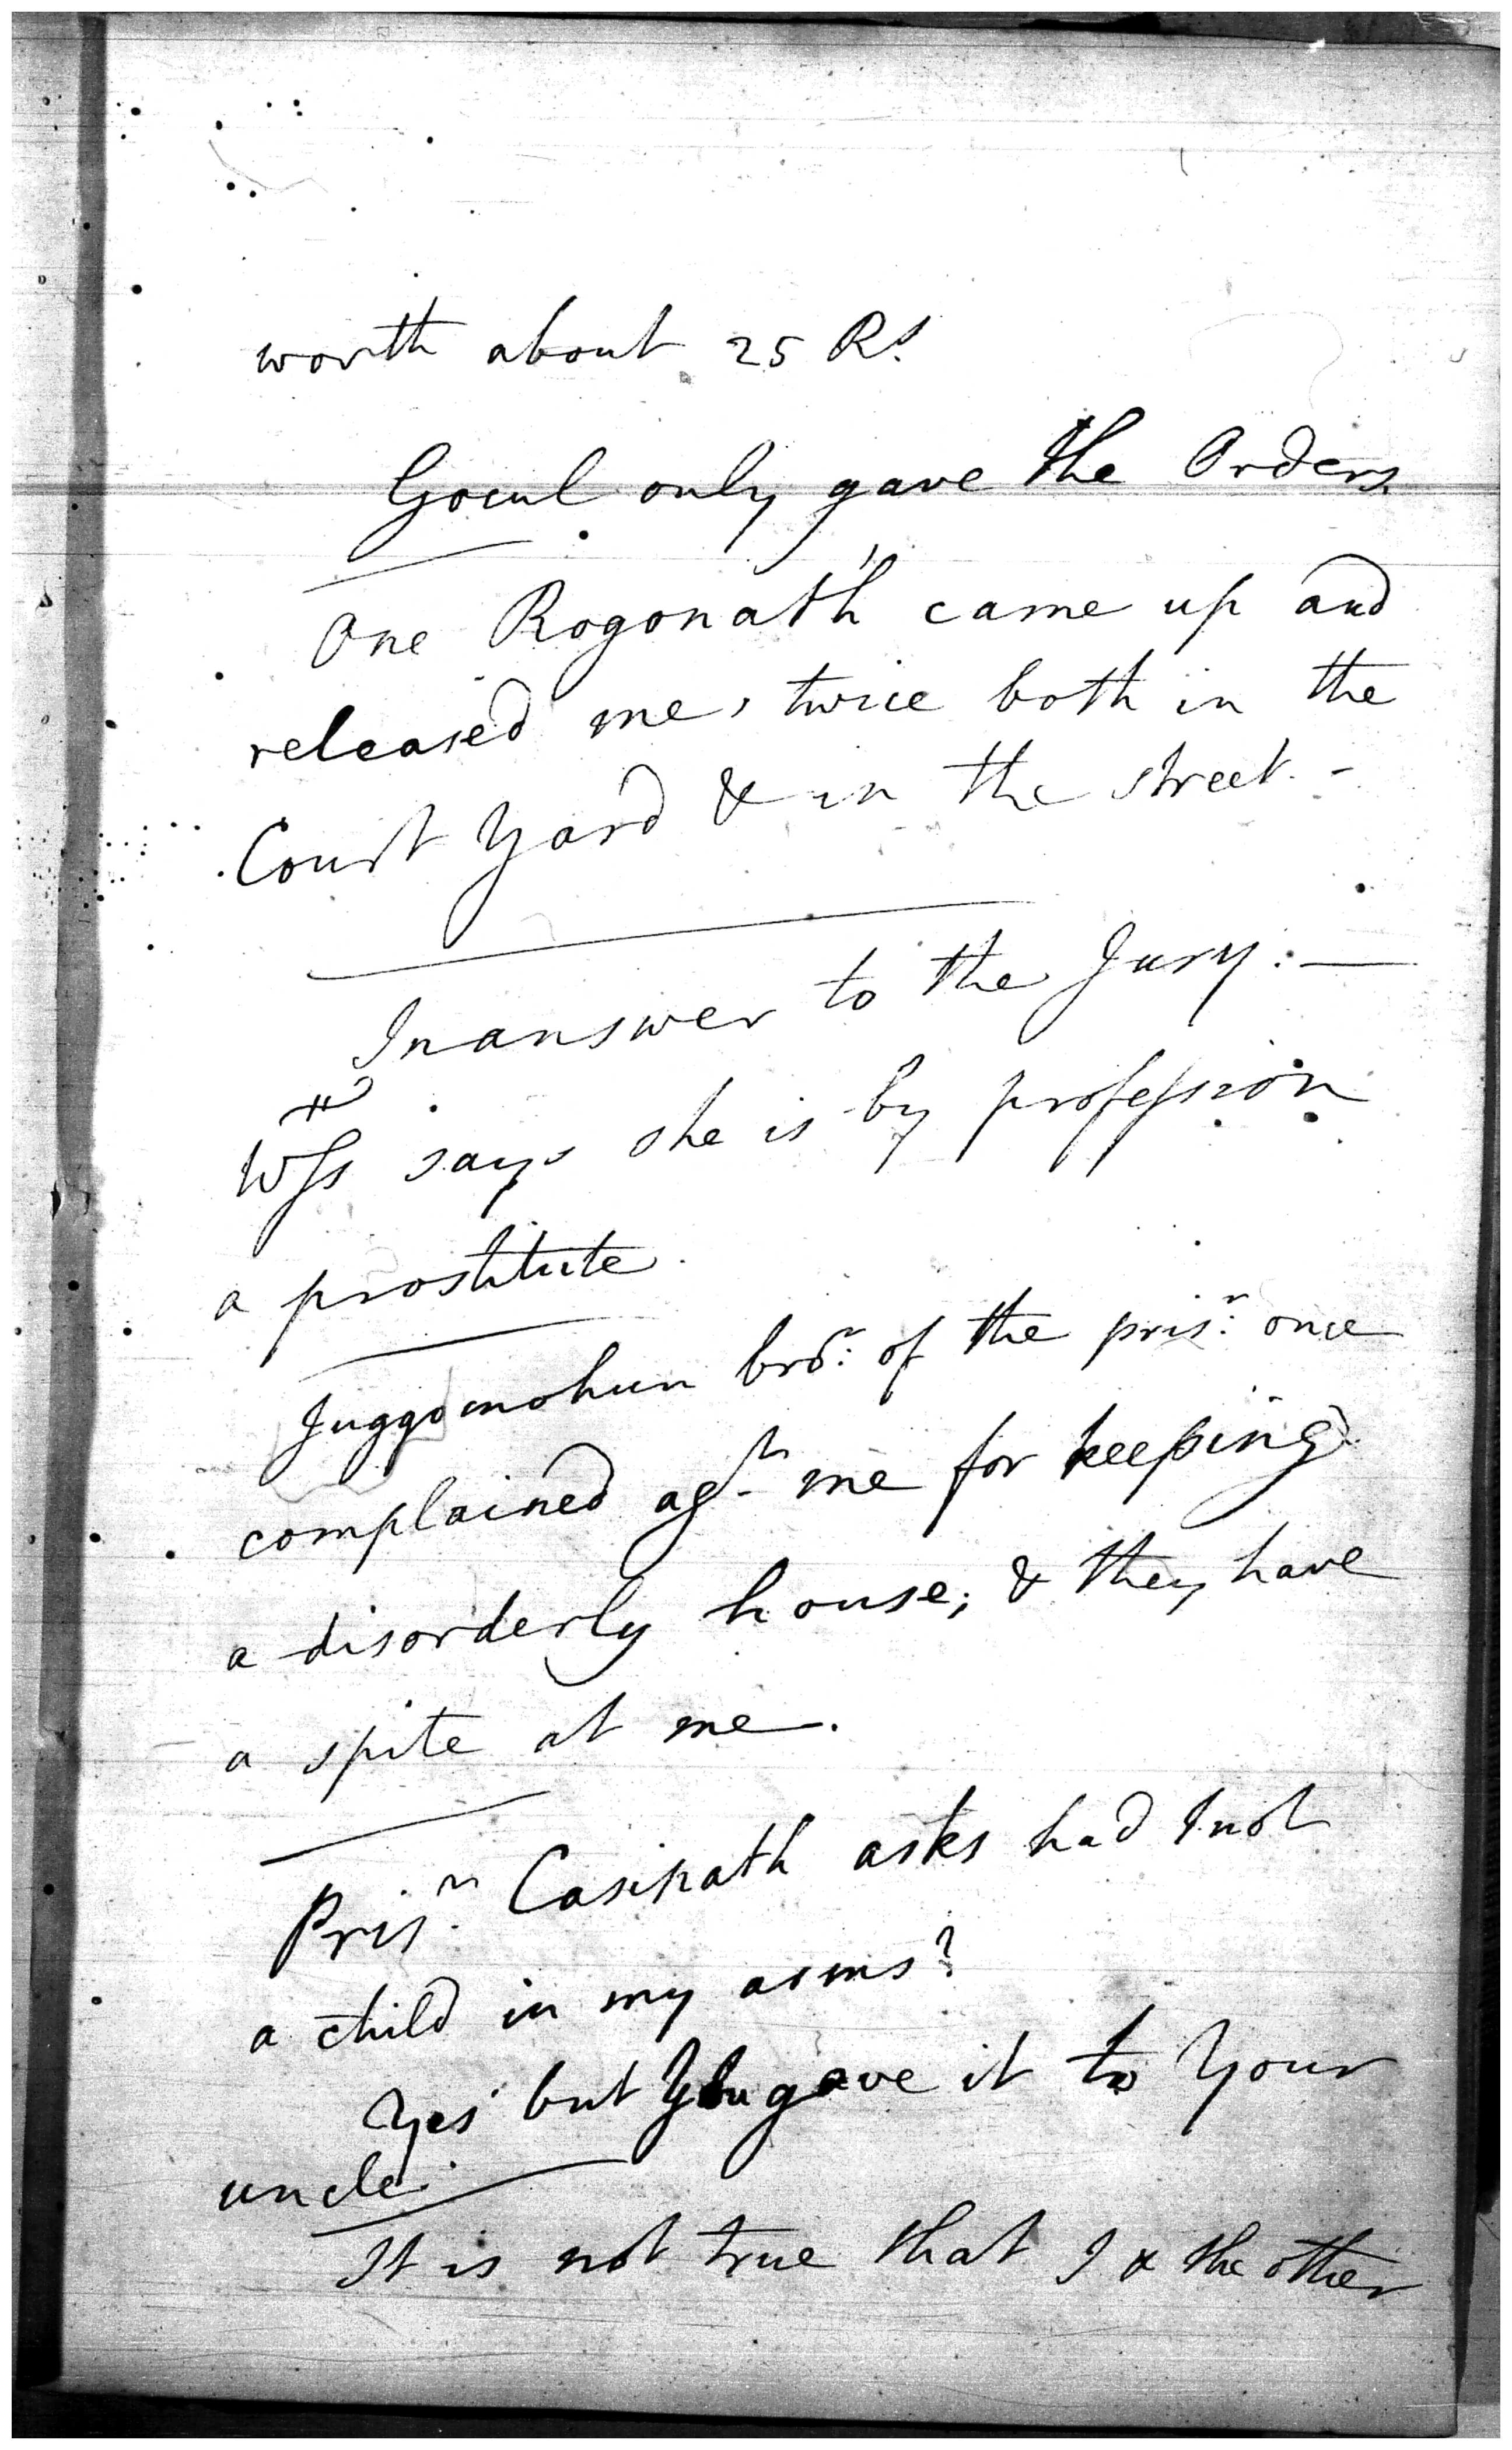 worth about 25 Rs.
Gocul only gave the Orders.
One Rogonath came up and
released me, twice both in the
Court Yard & in the street. -
In answer to the Jury: —
Wss says she is by profession
a prostitute.
Juggomohun bror: of the prisr: once
complained agt me for keeping
a disorderly house; & they have
a spite at me.
Prisr. Casinath asks had I not
a child in my arms?
Yes but You gave it to Your
uncle.
It is not true that I & the other